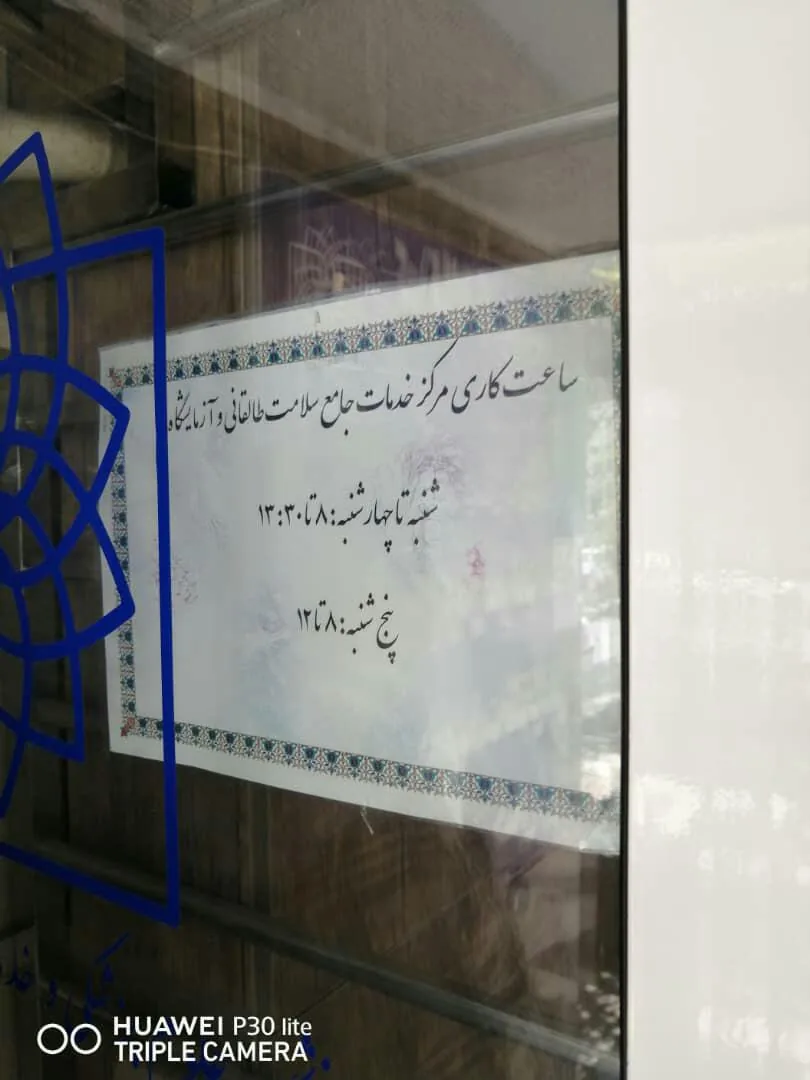 ساعت کاری مرکز خدمات جامع سلامت طالقانی و آزمایشگاه
شنبه تا چهارشنبه: ۸ تا ۱۳:۳۰
پنج شنبه: ۸ تا ۱۲
HUAWEI P30 lite
TRIPLE CAMERA